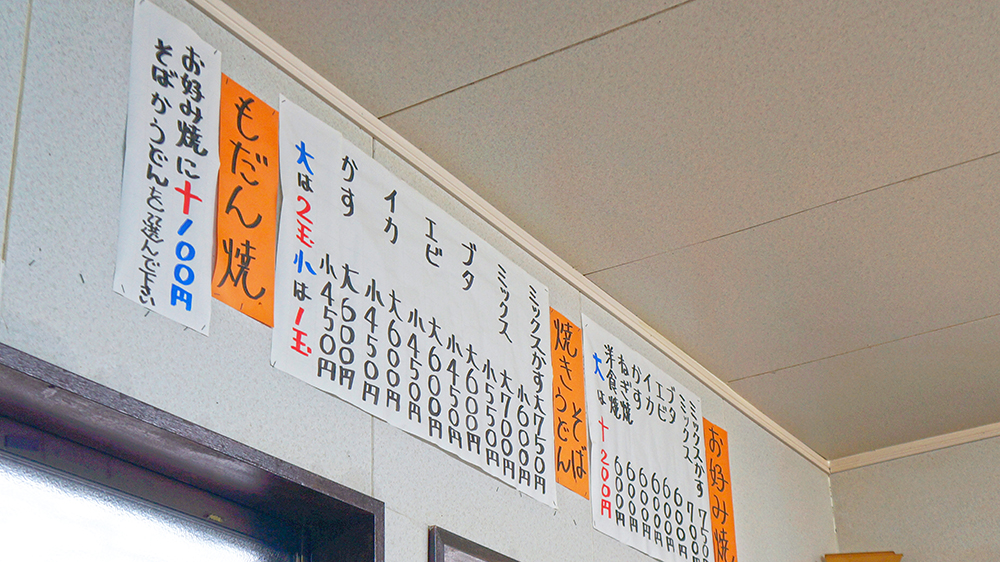 お好み焼
ミックスかす 750
ミックス 700
ブタ 600
エビ 600円
イカ 600円
かす 600円
ねぎ焼 600円
洋食焼 600円
大は+200円
焼き そば
うどん
ミックスかす 大750円
小600円
ミックス 大700円
小550円
ブタ 大600円
小450円
エビ 大600円
小450円
イカ 大600円
小450円
かす 大600円
小450円
大は2玉 小は1玉
もだん焼
お好み焼に+100円
そばかうどんを選んで下さい